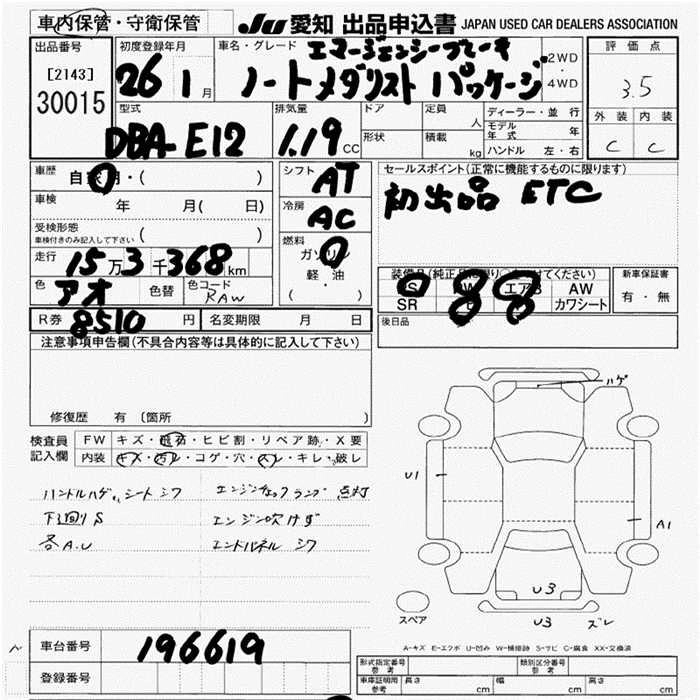 車内保管・守衛保管
JU 愛知 出品申込書 JAPAN USED CAR DEALERS ASSOCIATION
出品番号
[2143]
30015
初度登録年月
26 1月
車名・グレード
エマージェンシーブレーキ
ノートメダリスト パッケージ
2WD
・
4WD
評価点
3.5
外装 内装
C C
型式
DBA-E12
排気量
1.19 CC
ドア
形状
定員
人
積載
kg
ディーラー・並行
モデル年式 年
ハンドル 左・右
車歴
自家用・( )
車検 年 月( 日)
受検形態
車検付きのみ記入して下さい ( )
走行
15万3千368km
色
アオ
色替
色コード
RAW
シフト
AT
冷房
AC
燃料
ガソリン
軽・油
( ・ )
セールスポイント(正常に機能するものに限ります)
初出品 ETC
エアB AW
SR カワシート
新車保証書
有・無
後日品
R券
8510 円
名変期限 月 日
注意事項申告欄(不具合内容等は具体的に記入して下さい)
修復歴 有 〔箇所 〕
検査員
記入欄
FW キズ・飛石・ヒビ割・リペア跡・X要
内装 キズ・汚レ・コゲ・穴・スレ・キレ・破レ
ハンドルハゲ、シートシワ エンジンチェックランプ 点灯
下廻りS エンジン吹けず
各A.U エンドパネル シワ
ハゲ
U1
A1
U3
U3 ズレ
スペア
A-キズ E-エクボ U-凹み W-補修跡 S-サビ C-腐食 XX-交換済
車台番号
196619
登録番号
型式指定番号
参考
類別区分番号
参考
車庫証明用
参考
長さ cm
幅 cm
高さ cm